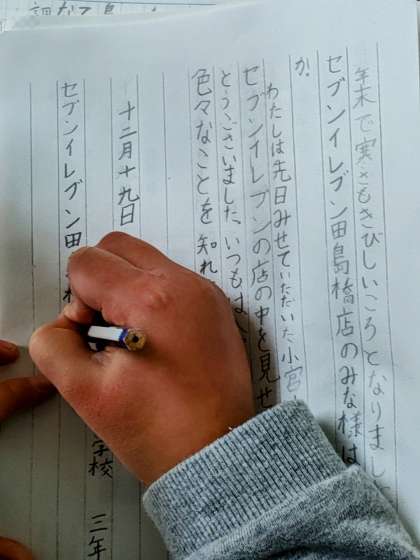 年末で寒さもきびしいころとなりまし
セブンイレブン田島橋店のみな様は
か。
わたしは先日みせていただいた小宮
セブンイレブンの店の中を見せ
とうございました。いつもは
色々なことを知れ
十二月十九日
学校 三年
セブンイレブン田